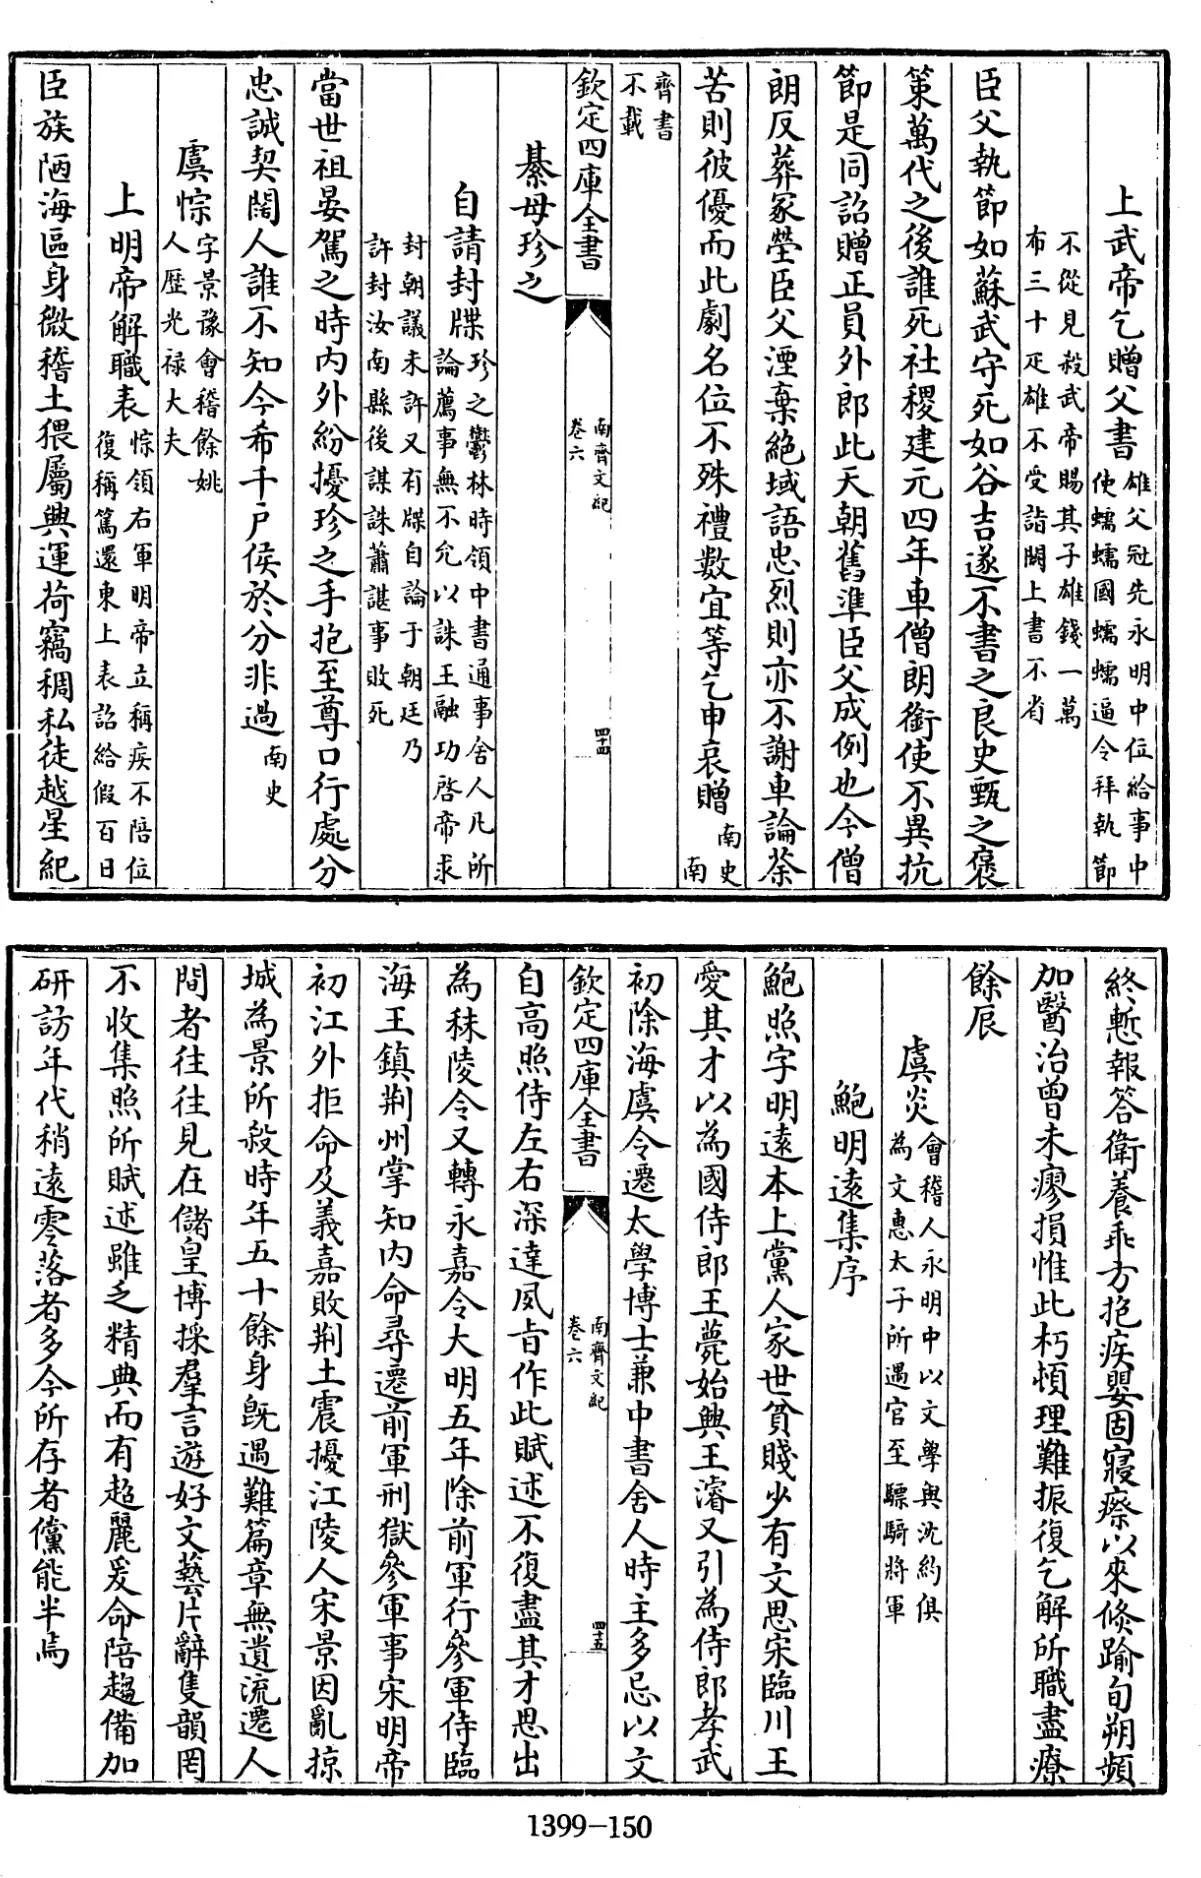 上武帝乞贈父書雄父冠先永明中位給事中
使蠕蠕國蠕蠕逼令拜執節
不從見殺武帝賜其子雄錢一萬
布三十疋雄不受詣闕上書不省
臣父執節如蘇武守死如谷吉遂不書之良史甄之褒
策萬代之後誰死社稷建元四年車僧朗銜使不異抗
節是同詔贈正員外郎此天朝舊準臣父成例也今僧
朗反葬冢塋臣父湮棄絶域語忠烈則亦不謝車論荼
苦則彼優而此劇名位不殊禮數宜等乞申哀贈南史
南
齊書
不載
欽定四庫全書
南齊文紀
卷六
四十四
綦毋珍之
自請封牒珍之鬱林時領中書通事舍人凡所
論薦事無不允以誅王融功啓帝求
封朝議未許又有牒自論于朝廷乃
許封汝南縣後謀誅蕭諶事敗死
當世祖晏駕之時内外紛擾珍之手抱至尊口行處分
忠誠契闊人誰不知今希千户侯於分非過南史
虞悰字景豫會稽餘姚
人歷光禄大夫
上明帝解職表悰領右軍明帝立稱疾不陪位
復稱篤還東上表詔給假百日
臣族陋海區身微稽土猥屬興運荷竊稠私徒越星紀
終慙報答衛養乖方抱疾嬰固寢瘵以來倏踰旬朔頻
加醫治曽未瘳損惟此朽頓理難振復乞解所職盡療
餘辰
虞炎會稽人永明中以文學與沈約俱
為文惠太子所遇官至驃騎將軍
鮑明逺集序
鮑照字明逺本上黨人家世貧賤少有文思宋臨川王
愛其才以為國侍郎王薨始興王濬又引為侍郎孝武
初除海虞令遷太學博士兼中書舍人時主多忌以文
欽定四庫全書
南齊文紀
卷六
四十五
自高照侍左右深達風旨作此賦述不復盡其才思出
為秣陵令又轉永嘉令大明五年除前軍行參軍侍臨
海王鎮荆州掌知内命尋遷前軍刑獄參軍事宋明帝
初江外拒命及義嘉敗荆土震擾江陵人宋景因亂掠
城為景所殺時年五十餘身既遇難篇章無遺流遷人
間者往往見在儲皇博採羣言遊好文藝片辭隻韻罔
不收集照所賦述雖乏精典而有超麗爰命陪趨備加
研訪年代稍逺零落者多今所存者儻能半焉
1399-150